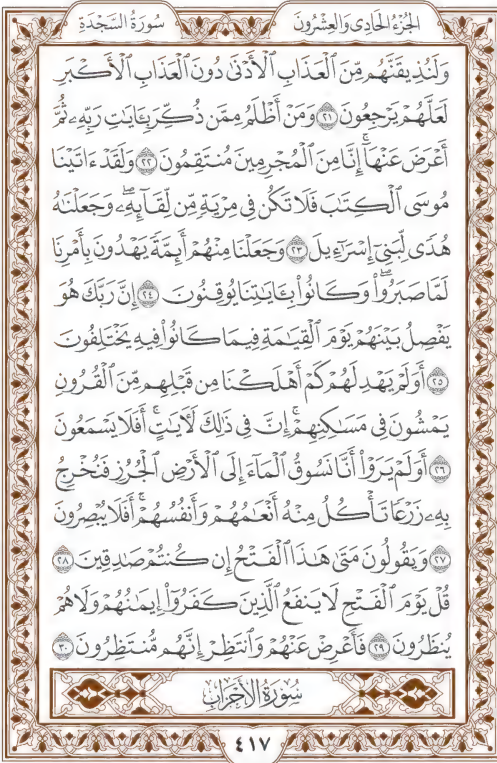 الجُزْءُ الحَادِي وَالعِشْرُونَ
سُورَةُ السَّجْدَةِ
وَلَنُذِيقَنَّهُم مِّنَ ٱلْعَذَابِ ٱلْأَدْنَىٰ دُونَ ٱلْعَذَابِ ٱلْأَكْبَرِ
لَعَلَّهُمْ يَرْجِعُونَ ٢١ وَمَنْ أَظْلَمُ مِمَّن ذُكِّرَ بِـَٔايَٰتِ رَبِّهِۦ ثُمَّ
أَعْرَضَ عَنْهَآۚ إِنَّا مِنَ ٱلْمُجْرِمِينَ مُنتَقِمُونَ ٢٢ وَلَقَدْ ءَاتَيْنَا
مُوسَى ٱلْكِتَٰبَ فَلَا تَكُن فِى مِرْيَةٍ مِّن لِّقَآئِهِۦۖ وَجَعَلْنَٰهُ
هُدًى لِّبَنِىٓ إِسْرَٰٓءِيلَ ٢٣ وَجَعَلْنَا مِنْهُمْ أَئِمَّةً يَهْدُونَ بِأَمْرِنَا
لَمَّا صَبَرُواْۖ وَكَانُواْ بِـَٔايَٰتِنَا يُوقِنُونَ ٢٤ إِنَّ رَبَّكَ هُوَ
يَفْصِلُ بَيْنَهُمْ يَوْمَ ٱلْقِيَٰمَةِ فِيمَا كَانُواْ فِيهِ يَخْتَلِفُونَ
٢٥ أَوَلَمْ يَهْدِ لَهُمْ كَمْ أَهْلَكْنَا مِن قَبْلِهِم مِّنَ ٱلْقُرُونِ
يَمْشُونَ فِى مَسَٰكِنِهِمْۚ إِنَّ فِى ذَٰلِكَ لَأٓيَٰتٍۚ أَفَلَا يَسْمَعُونَ
٢٦ أَوَلَمْ يَرَوْاْ أَنَّا نَسُوقُ ٱلْمَآءَ إِلَى ٱلْأَرْضِ ٱلْجُرُزِ فَنُخْرِجُ
بِهِۦ زَرْعًا تَأْكُلُ مِنْهُ أَنْعَٰمُهُمْ وَأَنفُسُهُمْۚ أَفَلَا يُبْصِرُونَ
٢٧ وَيَقُولُونَ مَتَىٰ هَٰذَا ٱلْفَتْحُ إِن كُنتُمْ صَٰدِقِينَ ٢٨
قُلْ يَوْمَ ٱلْفَتْحِ لَا يَنفَعُ ٱلَّذِينَ كَفَرُوٓاْ إِيمَٰنُهُمْ وَلَا هُمْ
يُنظَرُونَ ٢٩ فَأَعْرِضْ عَنْهُمْ وَٱنتَظِرْ إِنَّهُم مُّنتَظِرُونَ ٣٠
سُورَةُ الأَحْزَابِ
٤١٧